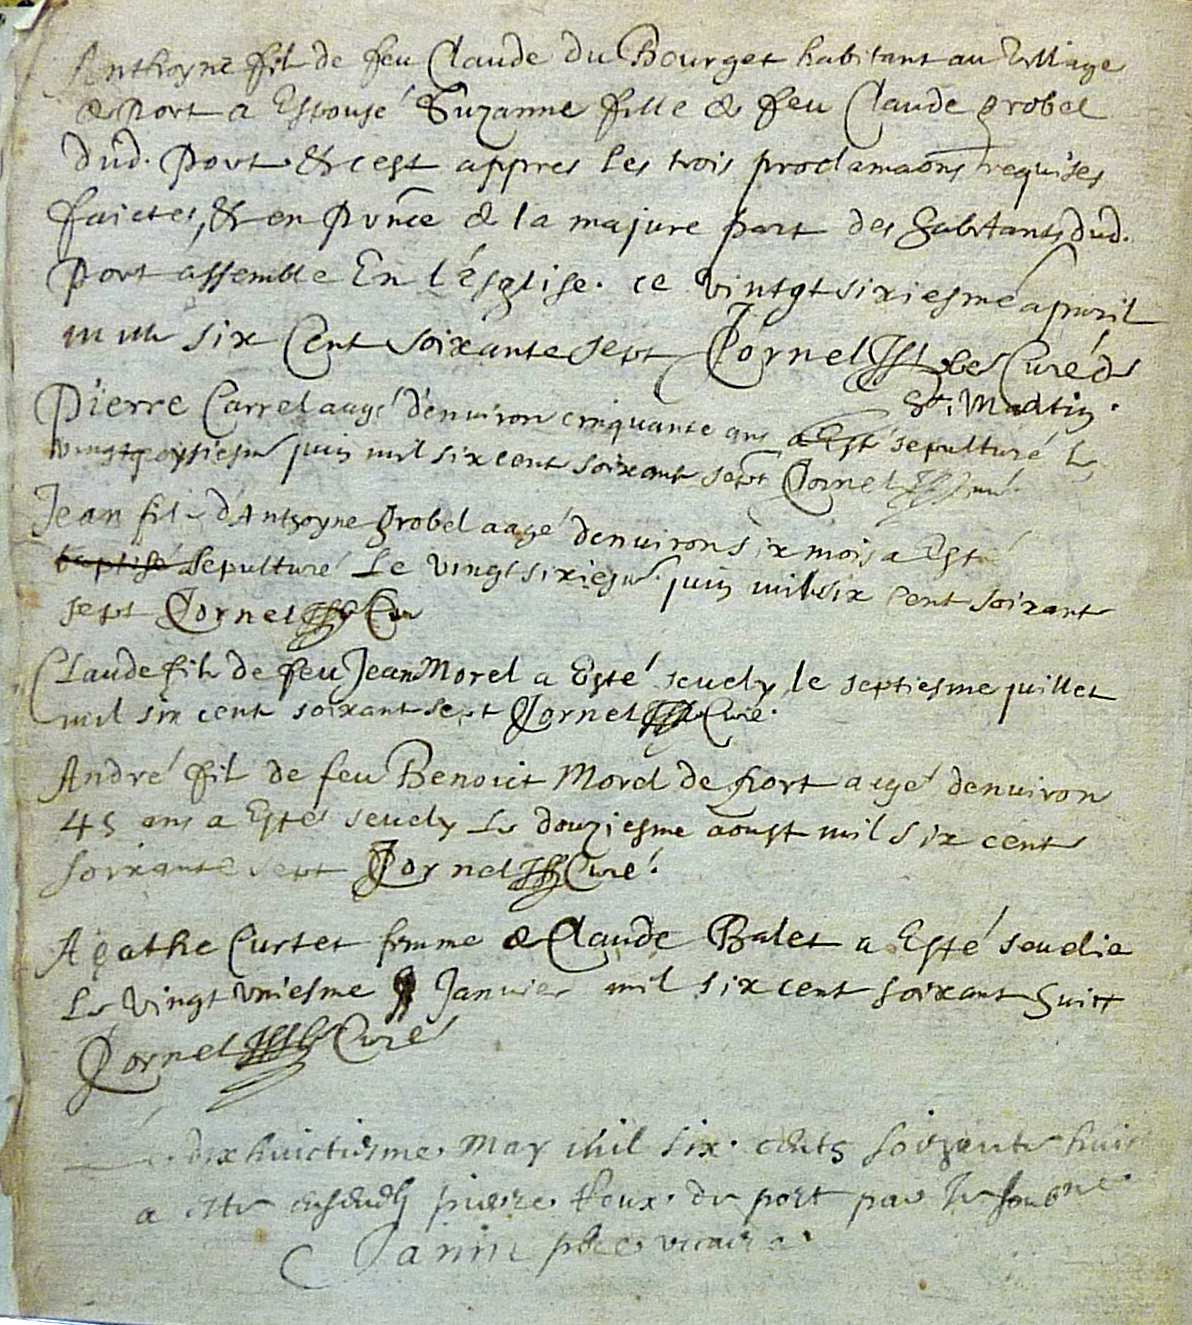 Anthoyne fil de feu Claude du Bourget habitant au village
de Port a Espousé Suzanne fille de feu Claude grobel
dud. Port & c'est appres les trois proclamaōns requises
faictes, & en pūnce de la majure part des habitants dud.
Port assemblé En l'ésglise. ce vingtsixiesme apvril
mil six Cent soixante sept Cornel Curé de
St. Martin.
Pierre Carrel aagé d'environ cinquante ans a Esté sepulturé le
juin mil six cent soixant sept Cornel
Jean fil d'Anthoyne grobel aagé denviron six mois a Esté
baptisé sepulturé Le vingtsixiesme juin mil six cent soixante
sept Cornel Cur
Claude fils de feu Jean Morel a Esté sevely le septiesme juillet
mil six cent soixant sept Cornel Curé.
André fil de feu Benoict Morel de port aagé denviron
45 ans a Esté sevely le douziesme aoust mil six cent
soixante sept Cornel Curé.
Agathe Curtet femme de Claude Balet a Esté sevelie
Le Vingt uniesme Janvier mil six cent soixant huitt
Cornel Curé
Le dixhuictiesme May mil six cents soixante huict
a este ensevely pierre Roux de port par Le soubné
Janin pbre vicaire.